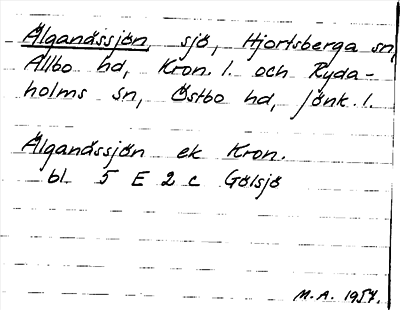 Älganässjön, sjö, Hjortsberga sn,
Allbo hd, Kron. l. och Ryda-
holms sn, Östbo hd, Jönk. l.
Älganässjön ek Kron.
bl 5 E 2 c Gölsjö
M.A. 1957.